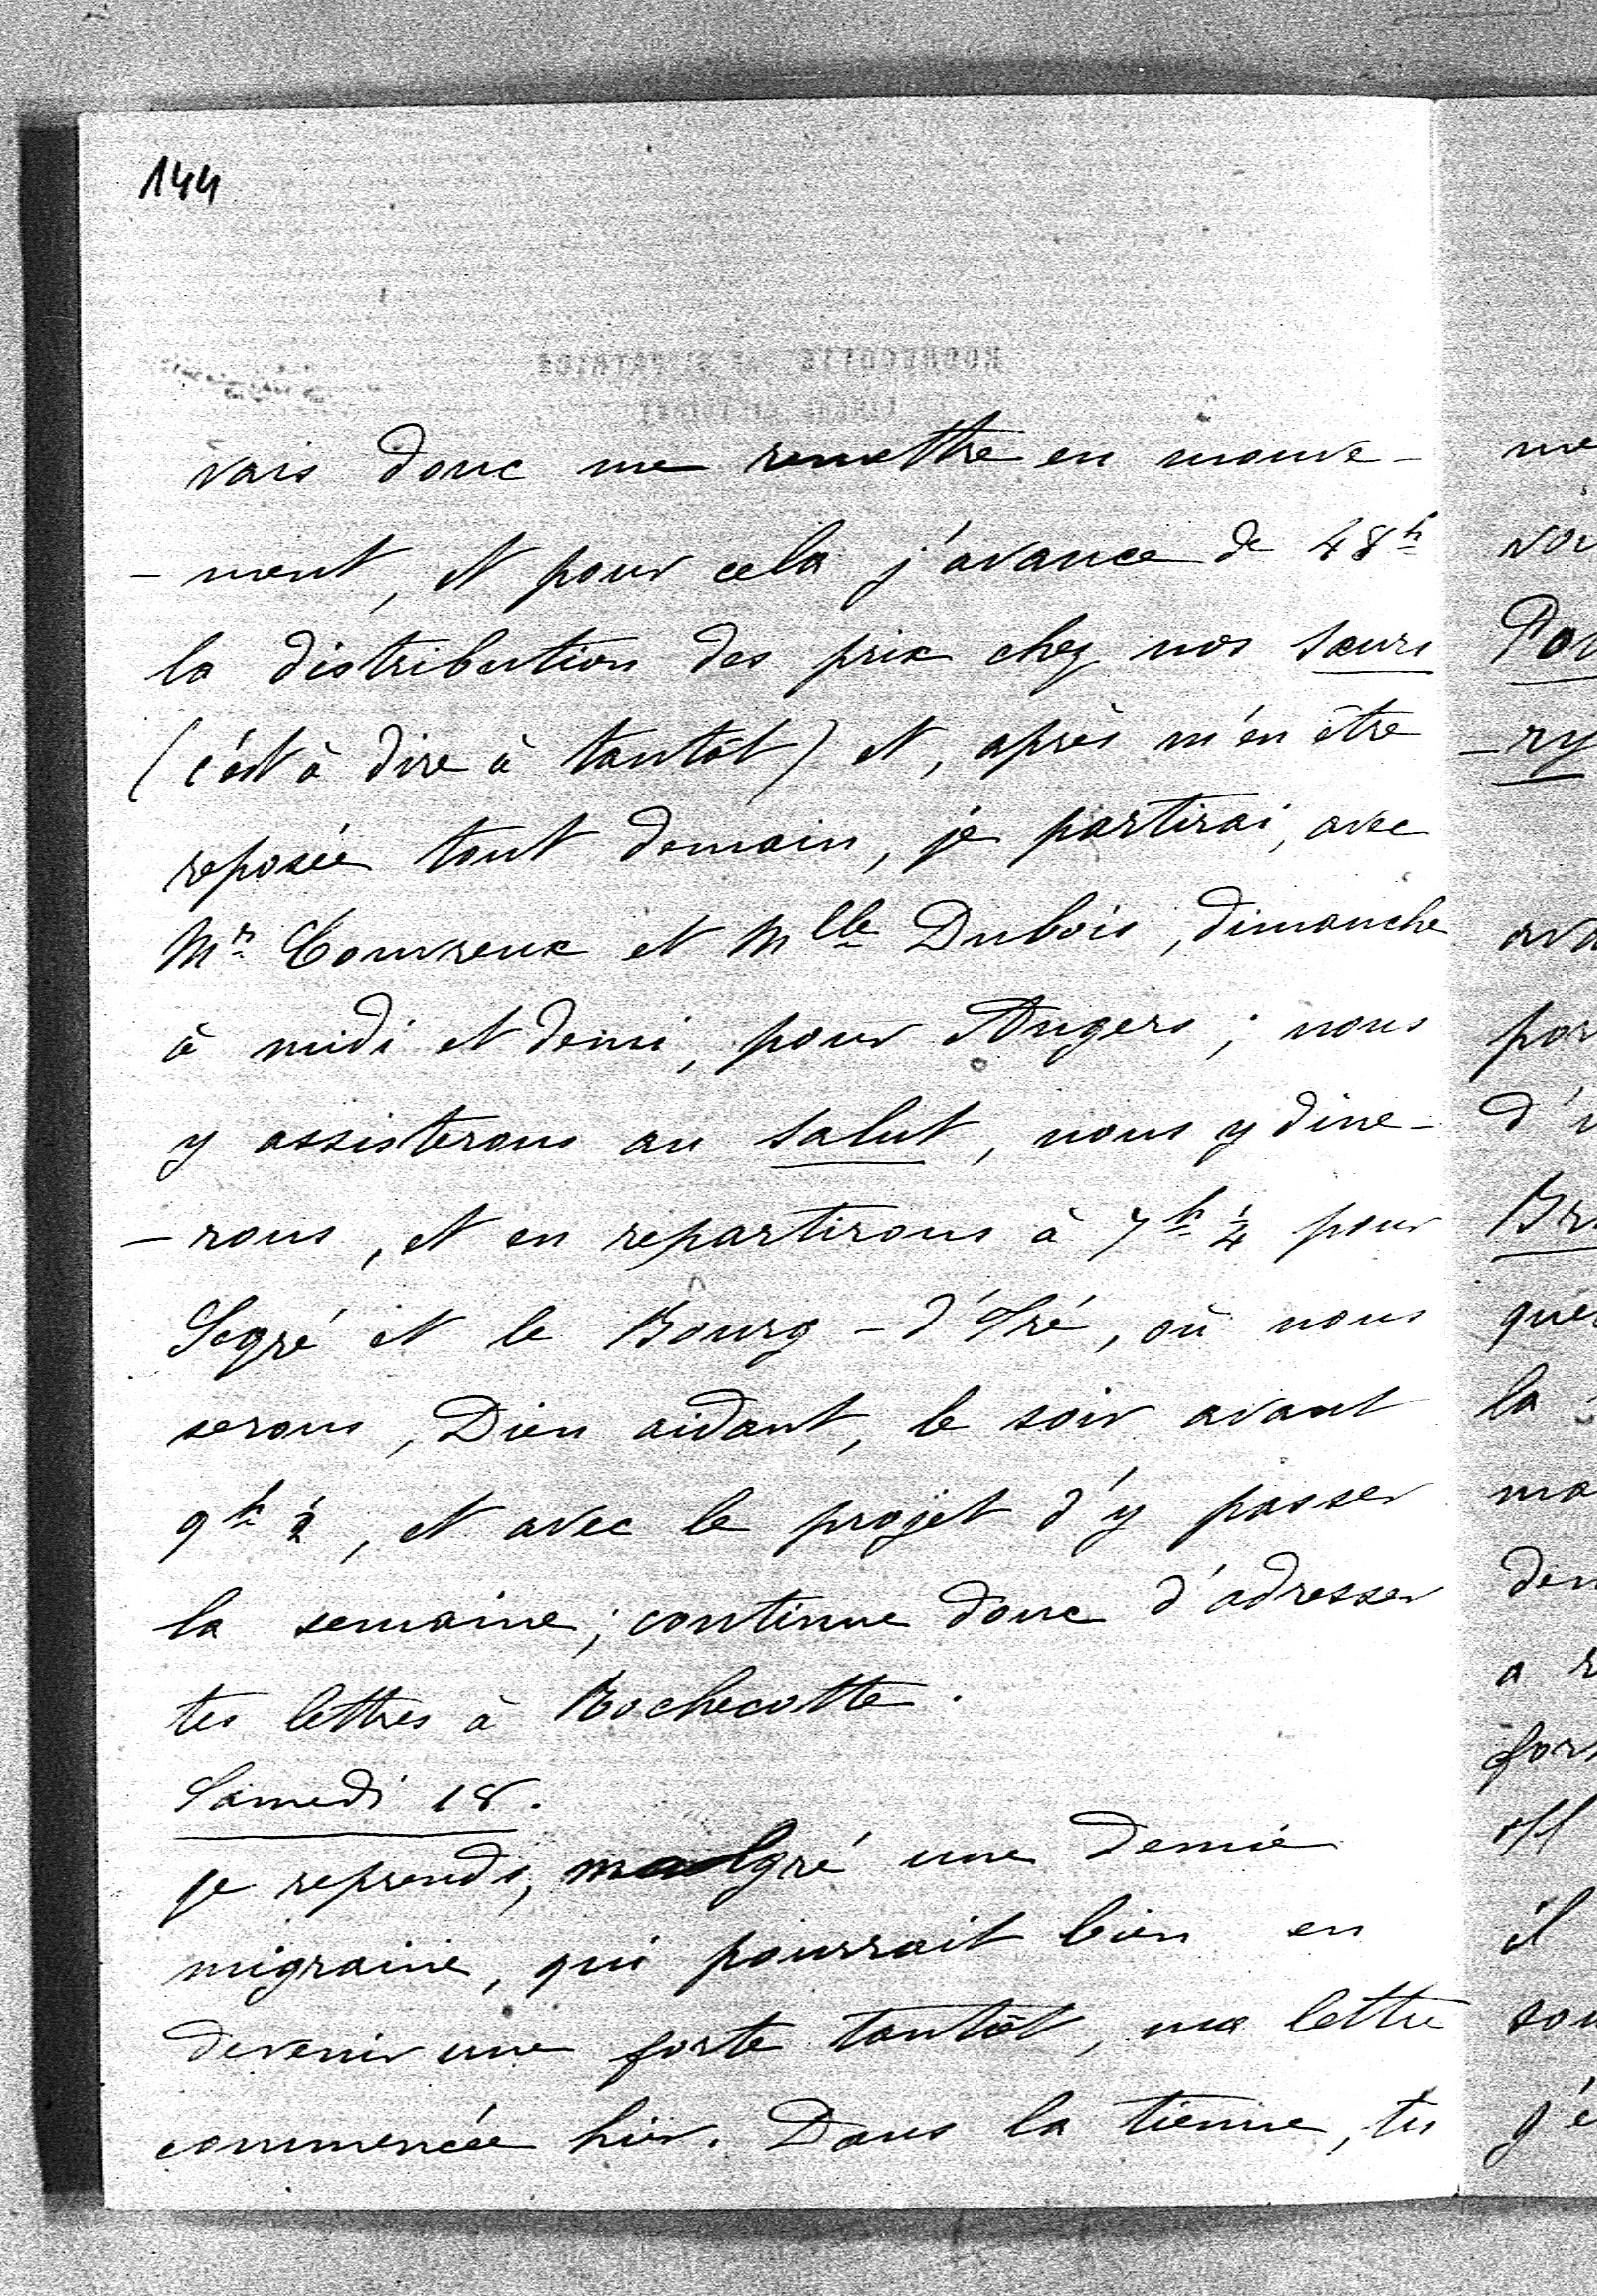 144
vais donc me remettre en mouve-
-ment, et pour cela j'avance de 48h
la distribution des prix chez nos sœurs
(c'est à dire à tantôt) et, après m'en être
reposée tout demain, je partirai, avec
Mr Couvreux et Mlle Dubois, dimanche
à midi et demi, pour Angers; nous
y assisterons au salut, nous y dine-
-rons, et en repartirons à 7h 1/4 pour
Segré et le Bourg-d'Iré, où nous
serons, Dieu aidant, le soir avant
9h 1/2, et avec le projet d'y passer
la semaine; continue donc d'adresser
tes lettres à Rochecotte.
Samedi 18.
je reprends, malgré une demie
migraine, qui pourrait bien en
devenir une forte tantôt, ma lettre
commencée hier. Dans la tienne, tu